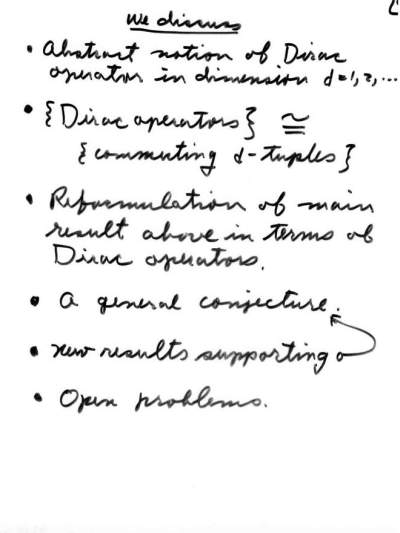 we discuss
• Abstract notion of Dirac
operator in dimension d=1,2,...
• {Dirac operators} ≅
{commuting d-tuples}
• Reformulation of main
result above in terms of
Dirac operators.
• a general conjecture.
• new results supporting
• Open problems.